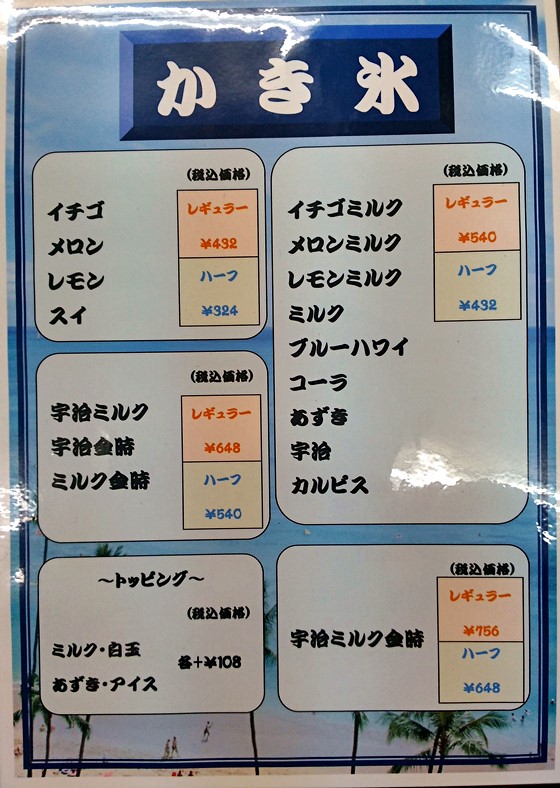 かき氷
(税込価格)
イチゴ
メロン
レモン
スイ
レギュラー
¥432
ハーフ
¥324
(税込価格)
イチゴミルク
メロンミルク
レモンミルク
ミルク
ブルーハワイ
コーラ
あずき
宇治
カルピス
レギュラー
¥540
ハーフ
¥432
(税込価格)
宇治ミルク
宇治金時
ミルク金時
レギュラー
¥648
ハーフ
¥540
～トッピング～
(税込価格)
ミルク・白玉
あずき・アイス
各+¥108
(税込価格)
宇治ミルク金時
レギュラー
¥756
ハーフ
¥648